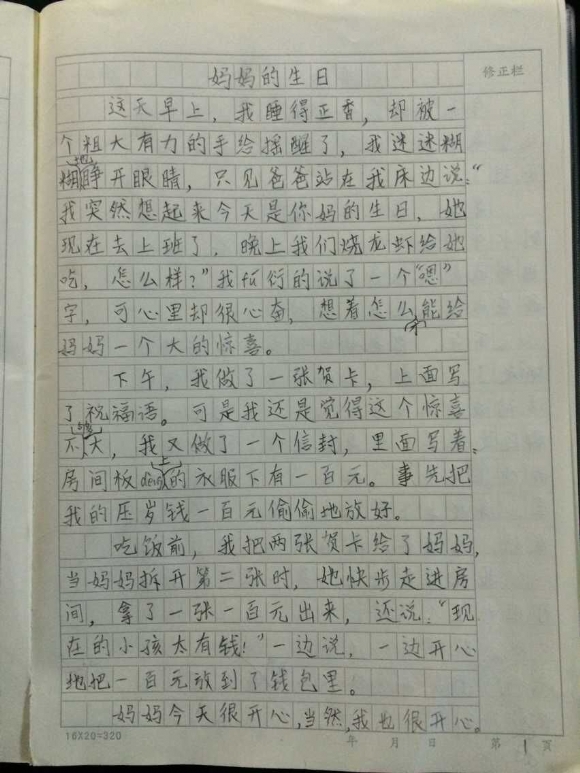 妈妈的生日
修正栏
这天早上，我睡得正香，却被一
个粗大有力的手给摇醒了，我迷迷糊
糊地睁开眼睛，只见爸爸站在我床边说：“
我突然想起来今天是你妈的生日，她
现在去上班了，晚上我们烧龙虾给她
吃，怎么样？”我fū衍的说了一个“嗯”
字，可心里却很心奋，想着怎么才能给
妈妈一个大的惊喜。
下午，我做了一张贺卡，上面写
了祝福语。可是我还是觉得这个惊喜
不够大，我又做了一个信封，里面写着：
房间板dèng上的衣服下有一百元。事先把
我的压岁钱一百元偷偷地放好。
吃饭前，我把两张贺卡给了妈妈，
当妈妈拆开第二张时，她快步走进房
间，拿了一张一百元出来，还说：“现
在的小孩太有钱！”一边说，一边开心
地把一百元放到了钱包里。
妈妈今天很开心，当然，我也很开心。
16X20=320
年 月 日 第 1 页